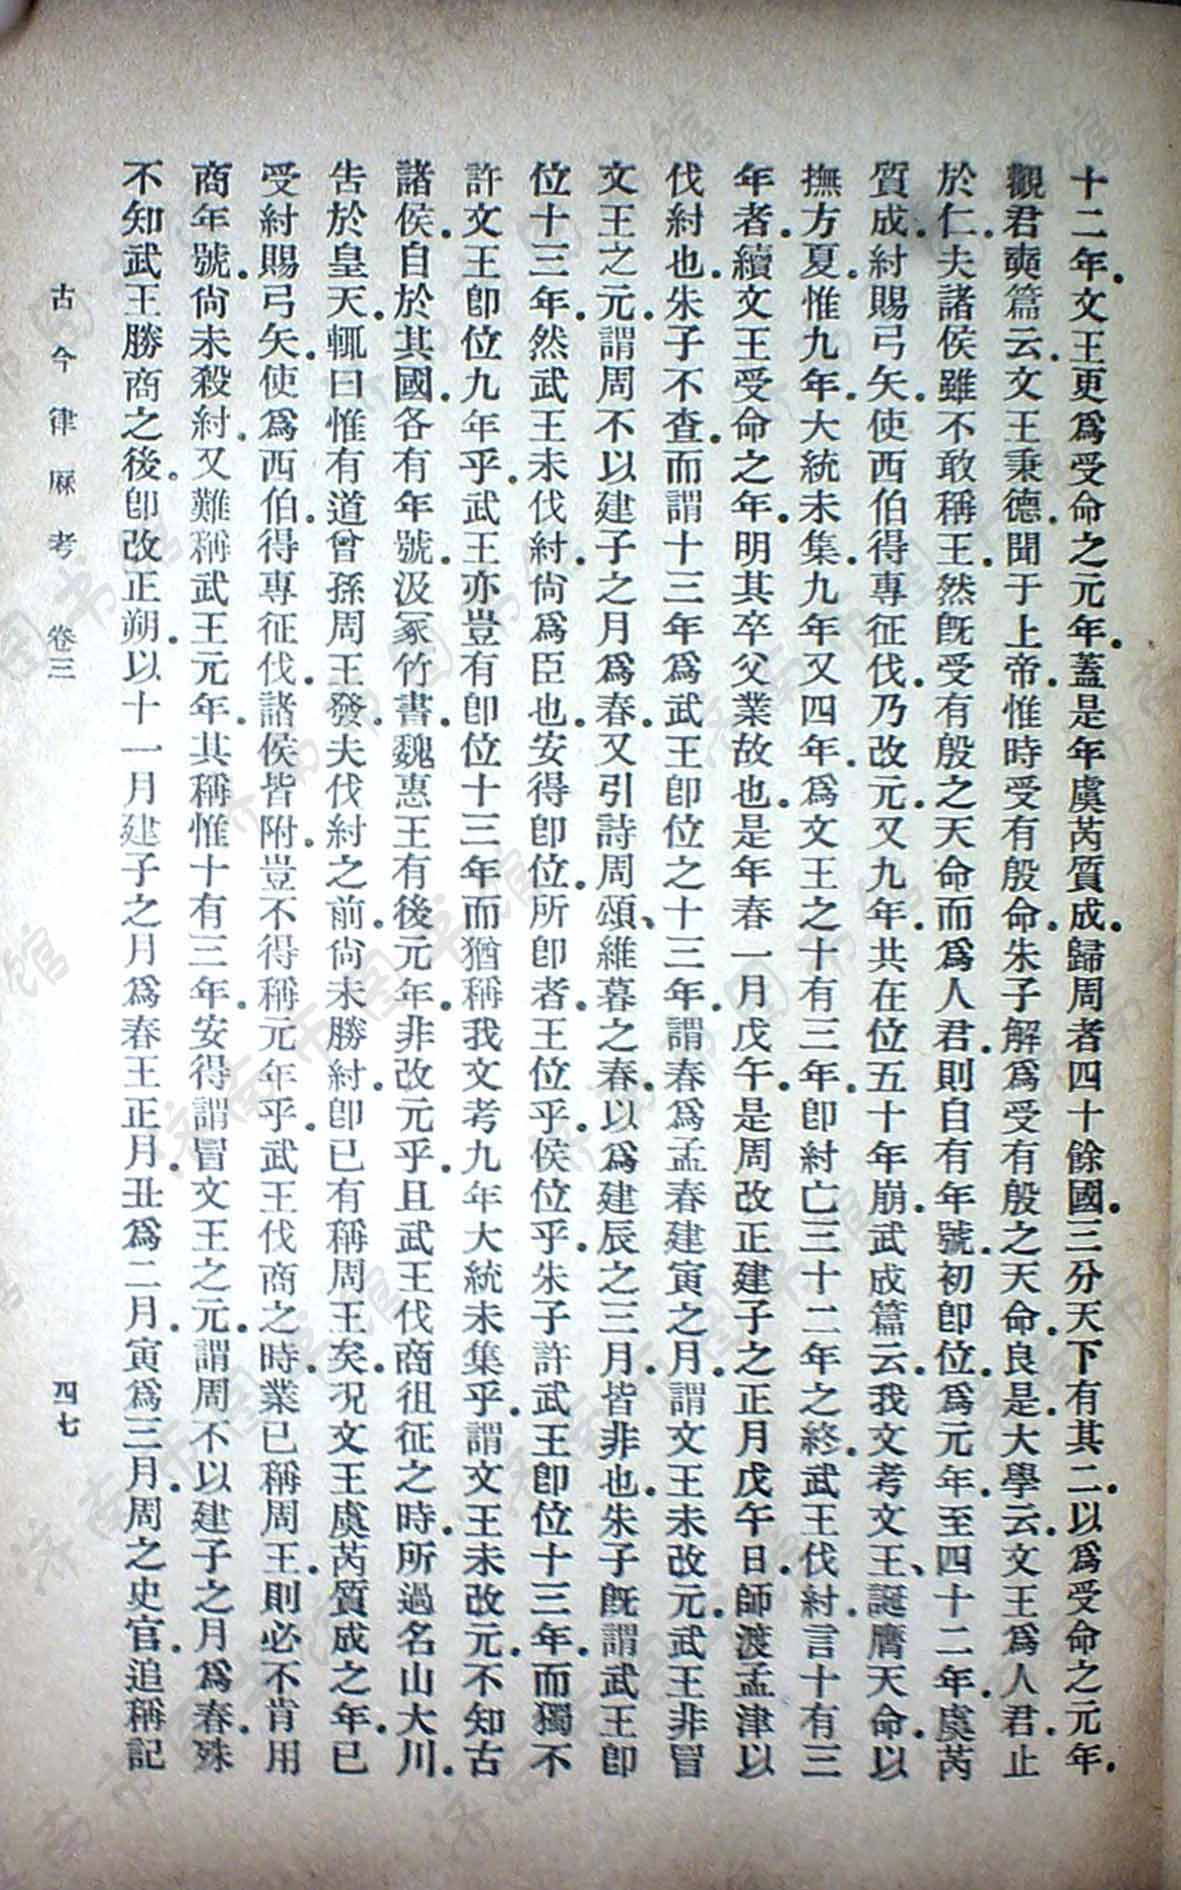 十二年。文王更爲受命之元年。蓋是年虞芮質成。歸周者四十餘國。三分天下有其二。以爲受命之元年。
觀君奭篇云。文王秉德。聞于上帝。惟時受有殷命。朱子解爲受有殷之天命。良是。大學云。文王爲人君。止
於仁。夫諸侯雖不敢稱王。然既受有殷之天命而爲人君。則自有年號。初卽位。爲元年。至四十二年。虞芮
質成。紂賜弓矢。使西伯得專征伐。乃改元。又九年。共在位五十年崩。武成篇云。我文考文王、誕膺天命。以
撫方夏。惟九年。大統未集。九年又四年。爲文王之十有三年。卽紂亡三十二年之終。武王伐紂。言十有三
年者。續文王受命之年。明其卒父業故也。是年春一月戊午。是周改正建子之正月戊午日。師渡孟津以
伐紂也。朱子不查。而謂十三年爲武王卽位之十三年。謂春爲孟春建寅之月。謂文王未改元。武王非冒
文王之元。謂周不以建子之月爲春。又引詩周頌、維暮之春。以爲建辰之三月。皆非也。朱子既謂武王卽
位十三年。然武王未伐紂。尙爲臣也。安得卽位。所卽者。王位乎。侯位乎。朱子許武王卽位十三年。而獨不
許文王卽位九年乎。武王亦豈有卽位十三年而猶稱我文考九年大統未集乎。謂文王未改元。不知古
諸侯。自於其國。各有年號。汲冢竹書。魏惠王有後元年。非改元乎。且武王伐商徂征之時。所過名山大川。
告於皇天。輒曰惟有道曾孫周王發。夫伐紂之前。尙未勝紂。卽已有稱周王矣。況文王虞芮質成之年。已
受紂賜弓矢。使爲西伯。得專征伐。諸侯皆附。豈不得稱元年乎。武王伐商之時。業已稱周王。則必不肯用
商年號。尙未殺紂。又難稱武王元年。其稱惟十有三年。安得謂冒文王之元。謂周不以建子之月爲春。殊
不知武王勝商之後。卽改正朔。以十一月建子之月爲春王正月。丑爲二月。寅爲三月。周之史官。追稱記
古今律厤考 卷三 四七